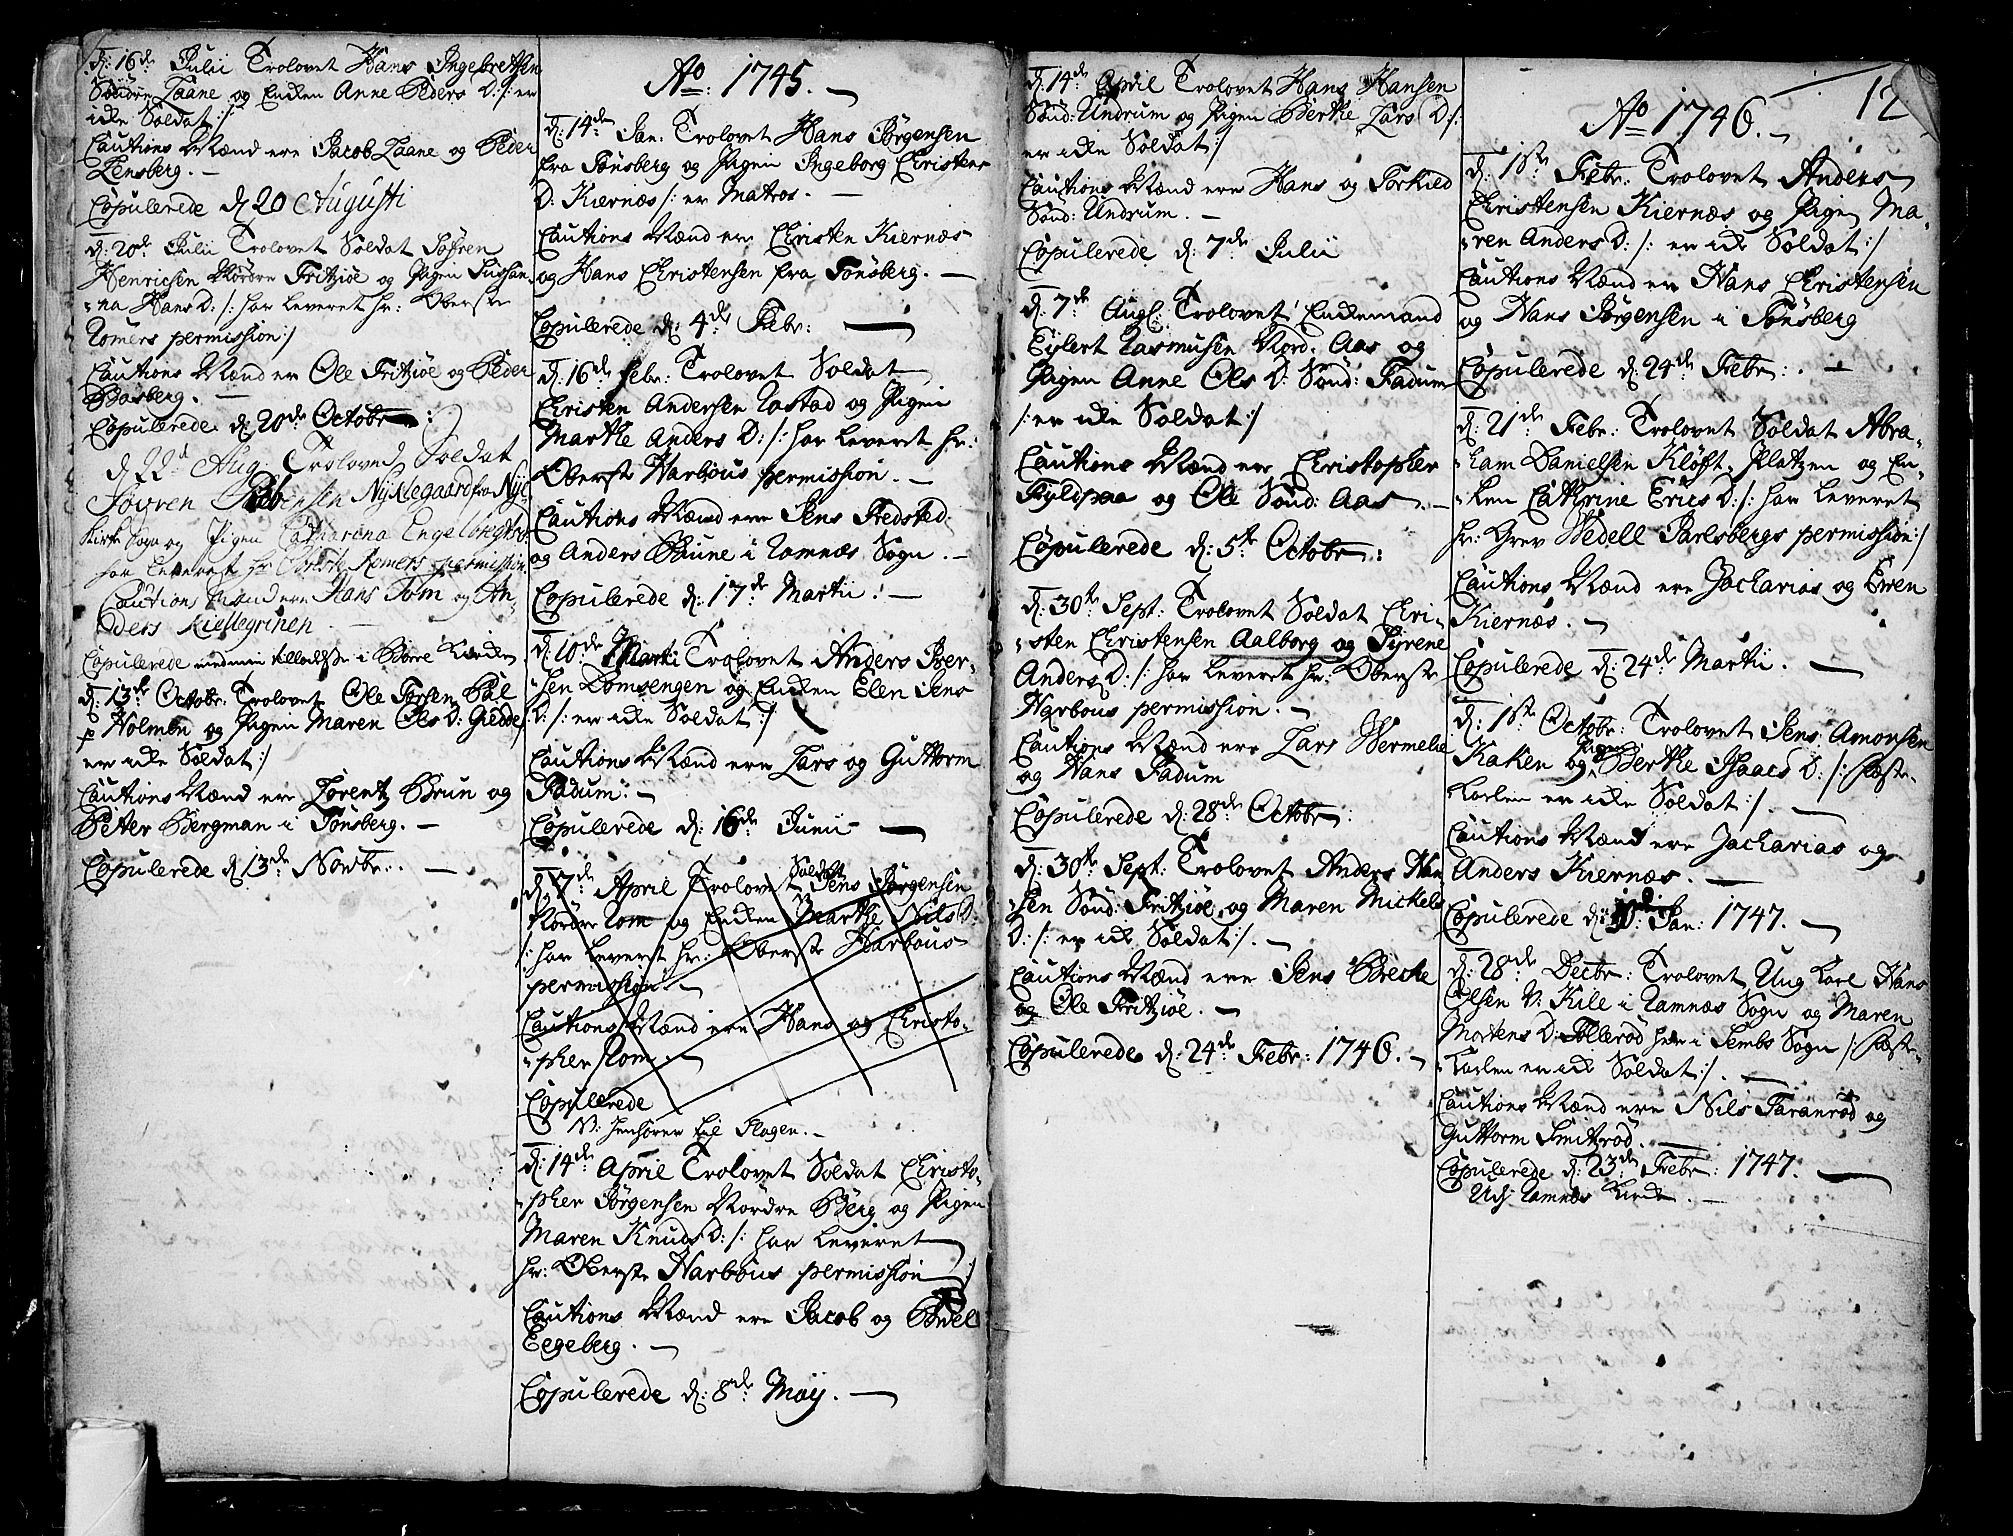 d: 16de Julii Trolovet Hans Ingebretsen
Søndre Laane og Enken Anne Peders D: /: er
icke Soldat :/
Cautions Mænd ere Jacob Laane og Peder
Lensberg. —
Copulerede d 20 Augusti
d: 20de Julii Trolovet Soldat Søfren
Henricsen Nordre Fritzøe og Pigen Sussan-
na Hans D: /: har leveret hr: Oberste
Romers permission :/
Cautions Mænd er Ole Fritzøe og Peder
Basberg. —
Copulerede d: 20de Octobr:
d 22d Aug Troloved Soldat
Søvren Nyklegaard fra Nyk
Kirke Sogn og Pigen Catharina
har leveret hr Oberste Romers permission
Cautions Mænd ere Hans Tom og An-
ders
Copulerede med min tilladelse i Borre Kircke
d: 13de Octobr: Trolovet Ole Torsen Bål
p Holmen og Pigen Maren Ols D: Gjedde
er icke Soldat :/
Cautions Mænd ere Lorentz Brun og
Peter Bergman i Tønsberg. —
Copulerede d 13de Novbr: —
Ao: 1745. —
d: 14de Jan: Trolovet Hans Jørgensen
fra Tønsberg og Pigen Ingeborg Christens
D: Kiernæs /: er Matros. —
Cautions Mænd ere Christen Kiernæs
og Hans Christensen fra Tønsberg. —
Copulerede d: 4de Febr: —
d: 16de Febr: Trolovet Soldat
Christen Andersen Rastad og Pigen
Marthe Anders D: /: har leveret hr:
Oberste Harbous permission. —
Cautions Mænd ere Jens Fredsted
og Anders Brune i Ramnæs Sogn. —
Copulerede d: 17de Martii: —
d: 10de Marti Trolovet Anders Iver-
sen Lomsengen og Enken Elen Jens
D: /: er icke Soldat :/
Cautions Mænd ere Lars og Guttorm
Fadum: —
Copulerede d: 16de Junii —
Soldat
d: 7de April Trolovet Jens Jørgensen
Nordre Rom og Enken Marthe Nils D:
/: har leveret hr: Oberste Harbous
permission. —
Cautions Mænd ere Hans og Christo-
pher Rom. —
Copulerede
N:
d: 14de April Trolovet Soldat Christo-
pher Jørgensen Nordre Berg og Pigen
Maren Knuds D: /: har leveret
hr: Oberste Harbous permission :/
Cautions Mænd ere Jacob og
Eegeberg. —
Copulerede d: 8de Maij. —
12
d: 14de April Trolovet Hans Hansen
Sønd: Undrum og Pigen Berthe Lars D: /:
er icke Soldat :/
Cautions Mænd ere Hans og Torkild
Sønd: Undrum. —
Copulerede d: 7de Julii
d: 7de Aug: Trolovet Enkemand
Eylert Rasmusen Nord: Aas og
Pigen Anne Ols D: Sønd: Fadum
/: er icke Soldat :/
Cautions Mænd ere Christopher
Fyldpaa og Ole Sønd: Aas. —
Copulerede d: 5te Octobr:
d: 30te Sept: Trolovet Soldat Chri-
sten Christensen Aalborg og Syrene
Anders D: /: har leveret hr: Oberste
Harbous permission. —
Cautions Mænd ere Lars Wermelie
og Hans Fadum
Copulerede d: 28de Octobr:
d: 30te Sept: Trolovet Anders Han-
sen Sønd: Fritzøe og Maren Mickels
D: /: er icke Soldat :/. —
Cautions Mænd ere Jens Breche
og Ole Fritzøe. —
Copulerede d: 24de Febr: 1746. —
Ao 1746. —
d: 1ste Febr: Trolovet Anders
Christensen Kiernæs og Pigen Ma-
ren Anders D: /: er icke Soldat :/
Cautions Mænd ere Hans Christensen
og Hans Jørgensen i Tønsberg
Copulerede d: 24de Febr: . —
d: 21de Febr: Trolovet Soldat Abra-
ham Danielsen Kløft-Platzen og En-
ken Cathrine Erics D: /: har leveret
hr: Grev Wedell Jarlsbergs permission :/
Cautions Mænd ere Zacharias og Even
Kiernæs. —
Copulerede d: 24de Martii. —
d: 1ste Octobr: Trolovet Jens Amonsen
Kaken og Pigen Berthe Isaacs D: /: Fæste-
Karlen er icke Soldat :/. —
Cautions Mænd ere Zacharias og
Anders Kiernæs. —
Copulerede d: Jan: 1747. —
d: 28de Decbr: Trolovet Ung Karl Hans
Olsen V: Kile i Ramnæs Sogn og Maren
Mortens D: Tollerød her i Sembs Sogn /: Fæste-
Karlen er icke Soldat :/. —
Cautions Mænd ere Nils Faranrød og
Guttorm Smitrød. —
Copulerede d: 23de Febr: 1747. —
Udj Ramnæs Kircke. —